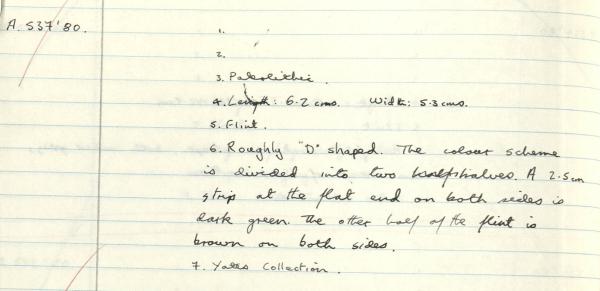 A. S37'80.
1.
2.
3. Paleolithic.
4. Length: 6.2 cms. Width: 5.3 cms.
5. Flint.
6. Roughly "D" shaped. The colour scheme
is divided into two halves. A 2.5 cm
strip at the flat end on both sides is
dark green. The other half of the flint is
brown on both sides.
7. Yates Collection.